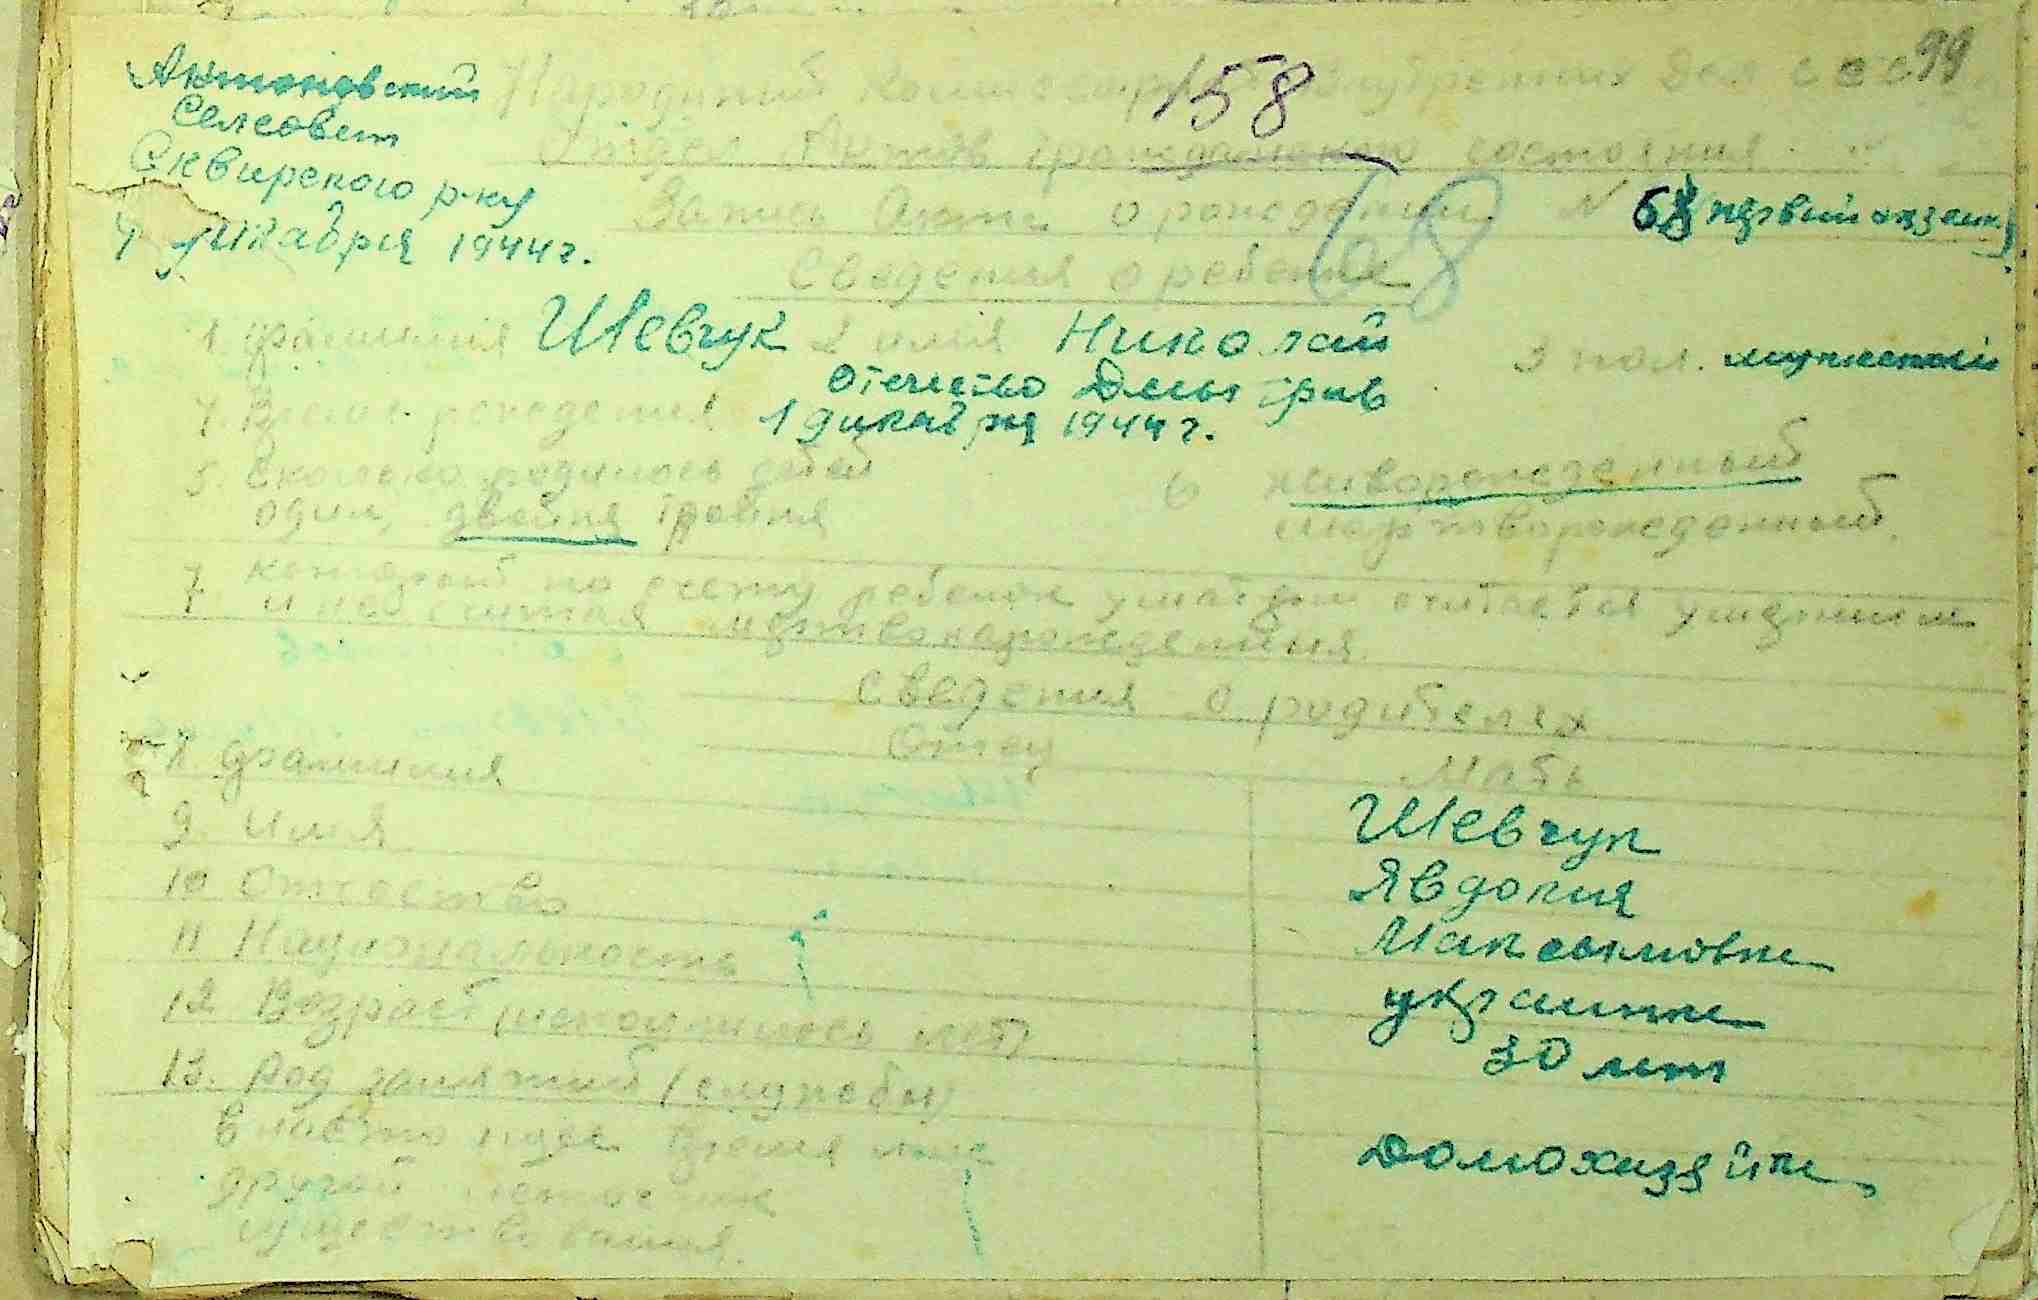 99
158
Антоновский
Селсовет
Сквирского р-ну
4 декабря 1944 г.
Народний Комиссариат Внутренних Дел СССР
Отдел Актов гражданского состояния
Запись Акта о рождении N 68 первий экземп.
68
Сведения о ребенке
1. фамилия Шевчук 2 имя Николай 3 пол. мужской
отечество Дмытрив
4. Время рождения 1 дикабря 1944 г.
5. Сколько родилось детей 6 живорожденный
один, двойня тройня мертворожденный.
7 который по счету ребенок у матери считается умершим
и не считая мертворожденния.
Сведения о родителях
Отец Мать
8. фамилия Шевчук
9. Имя Явдокия
10 Отчество Максымовна
11 Национальность украинка
12 Возраст (исполнилось лет) 30 лет
13. Род занятий (службы)
в настоящее время или Домохазяйка
другой источник
существования.